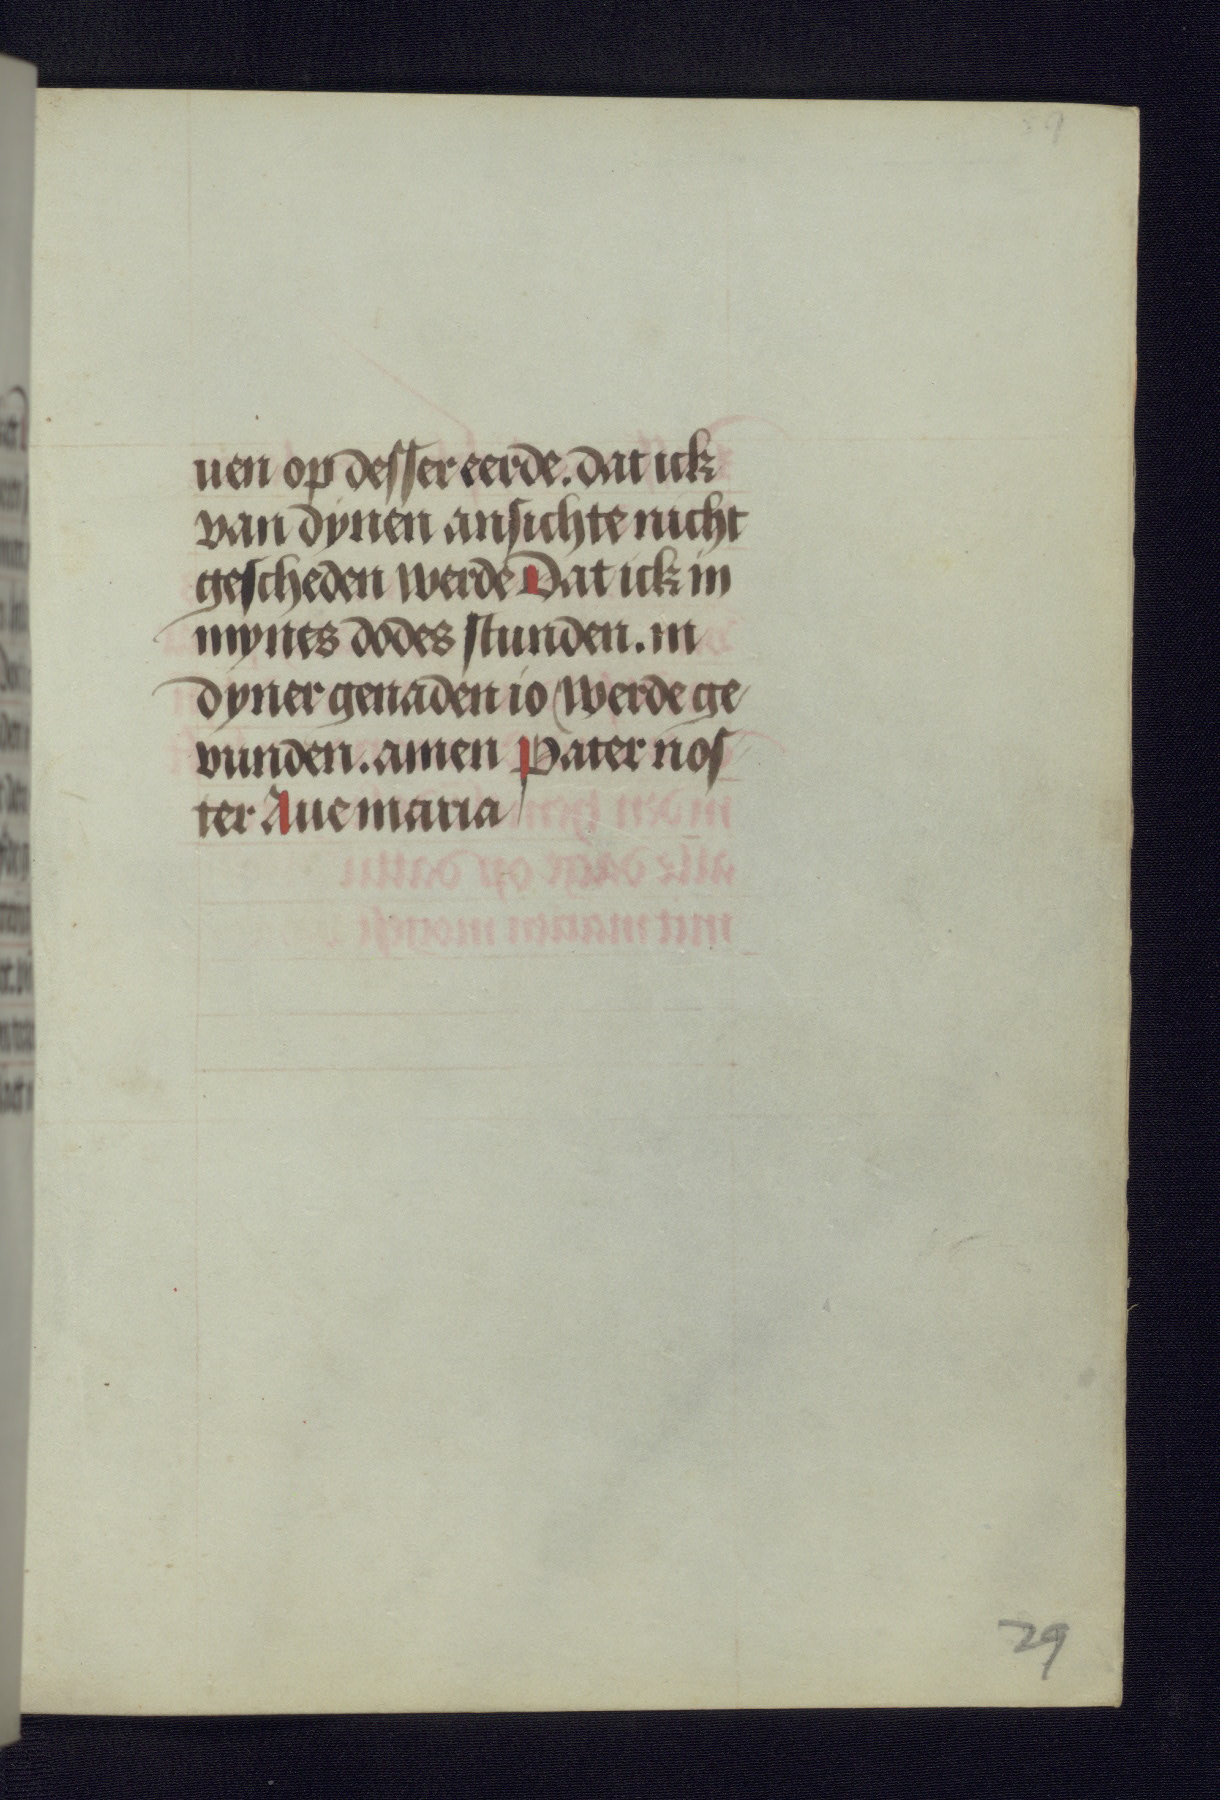 uen op desser eerde. dat ick
van dynen ansichte nicht
gescheden werde Dat ick in
mynes dodes stunden. in
dyner genaden io werde ge
vunden. amen Pater nos
ter Aue maria
29